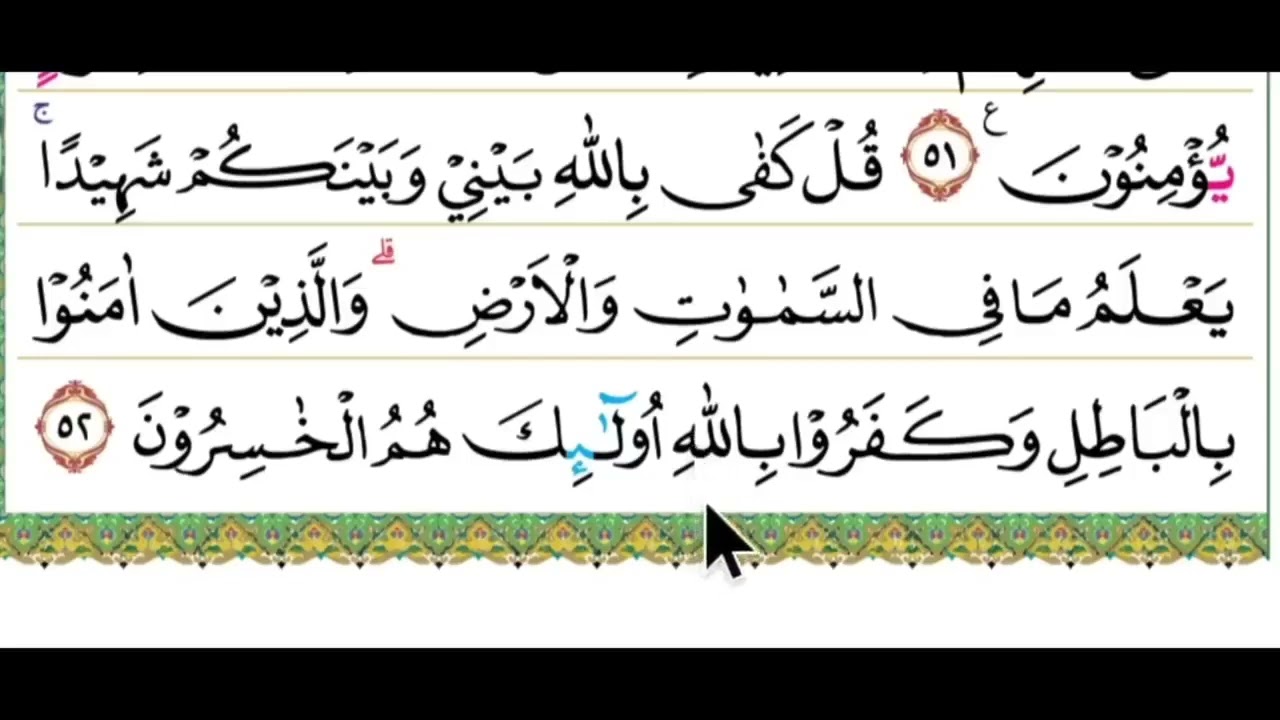 يُّؤْمِنُوْنَ ࣖ ٥١ قُلْ كَفٰى بِاللّٰهِ بَيْنِيْ وَبَيْنَكُمْ شَهِيْدًاۚ
يَعْلَمُ مَا فِى السَّمٰوٰتِ وَالْاَرْضِۗ وَالَّذِيْنَ اٰمَنُوْا
بِالْبَاطِلِ وَكَفَرُوْا بِاللّٰهِ اُولٰۤىِٕكَ هُمُ الْخٰسِرُوْنَ ٥٢